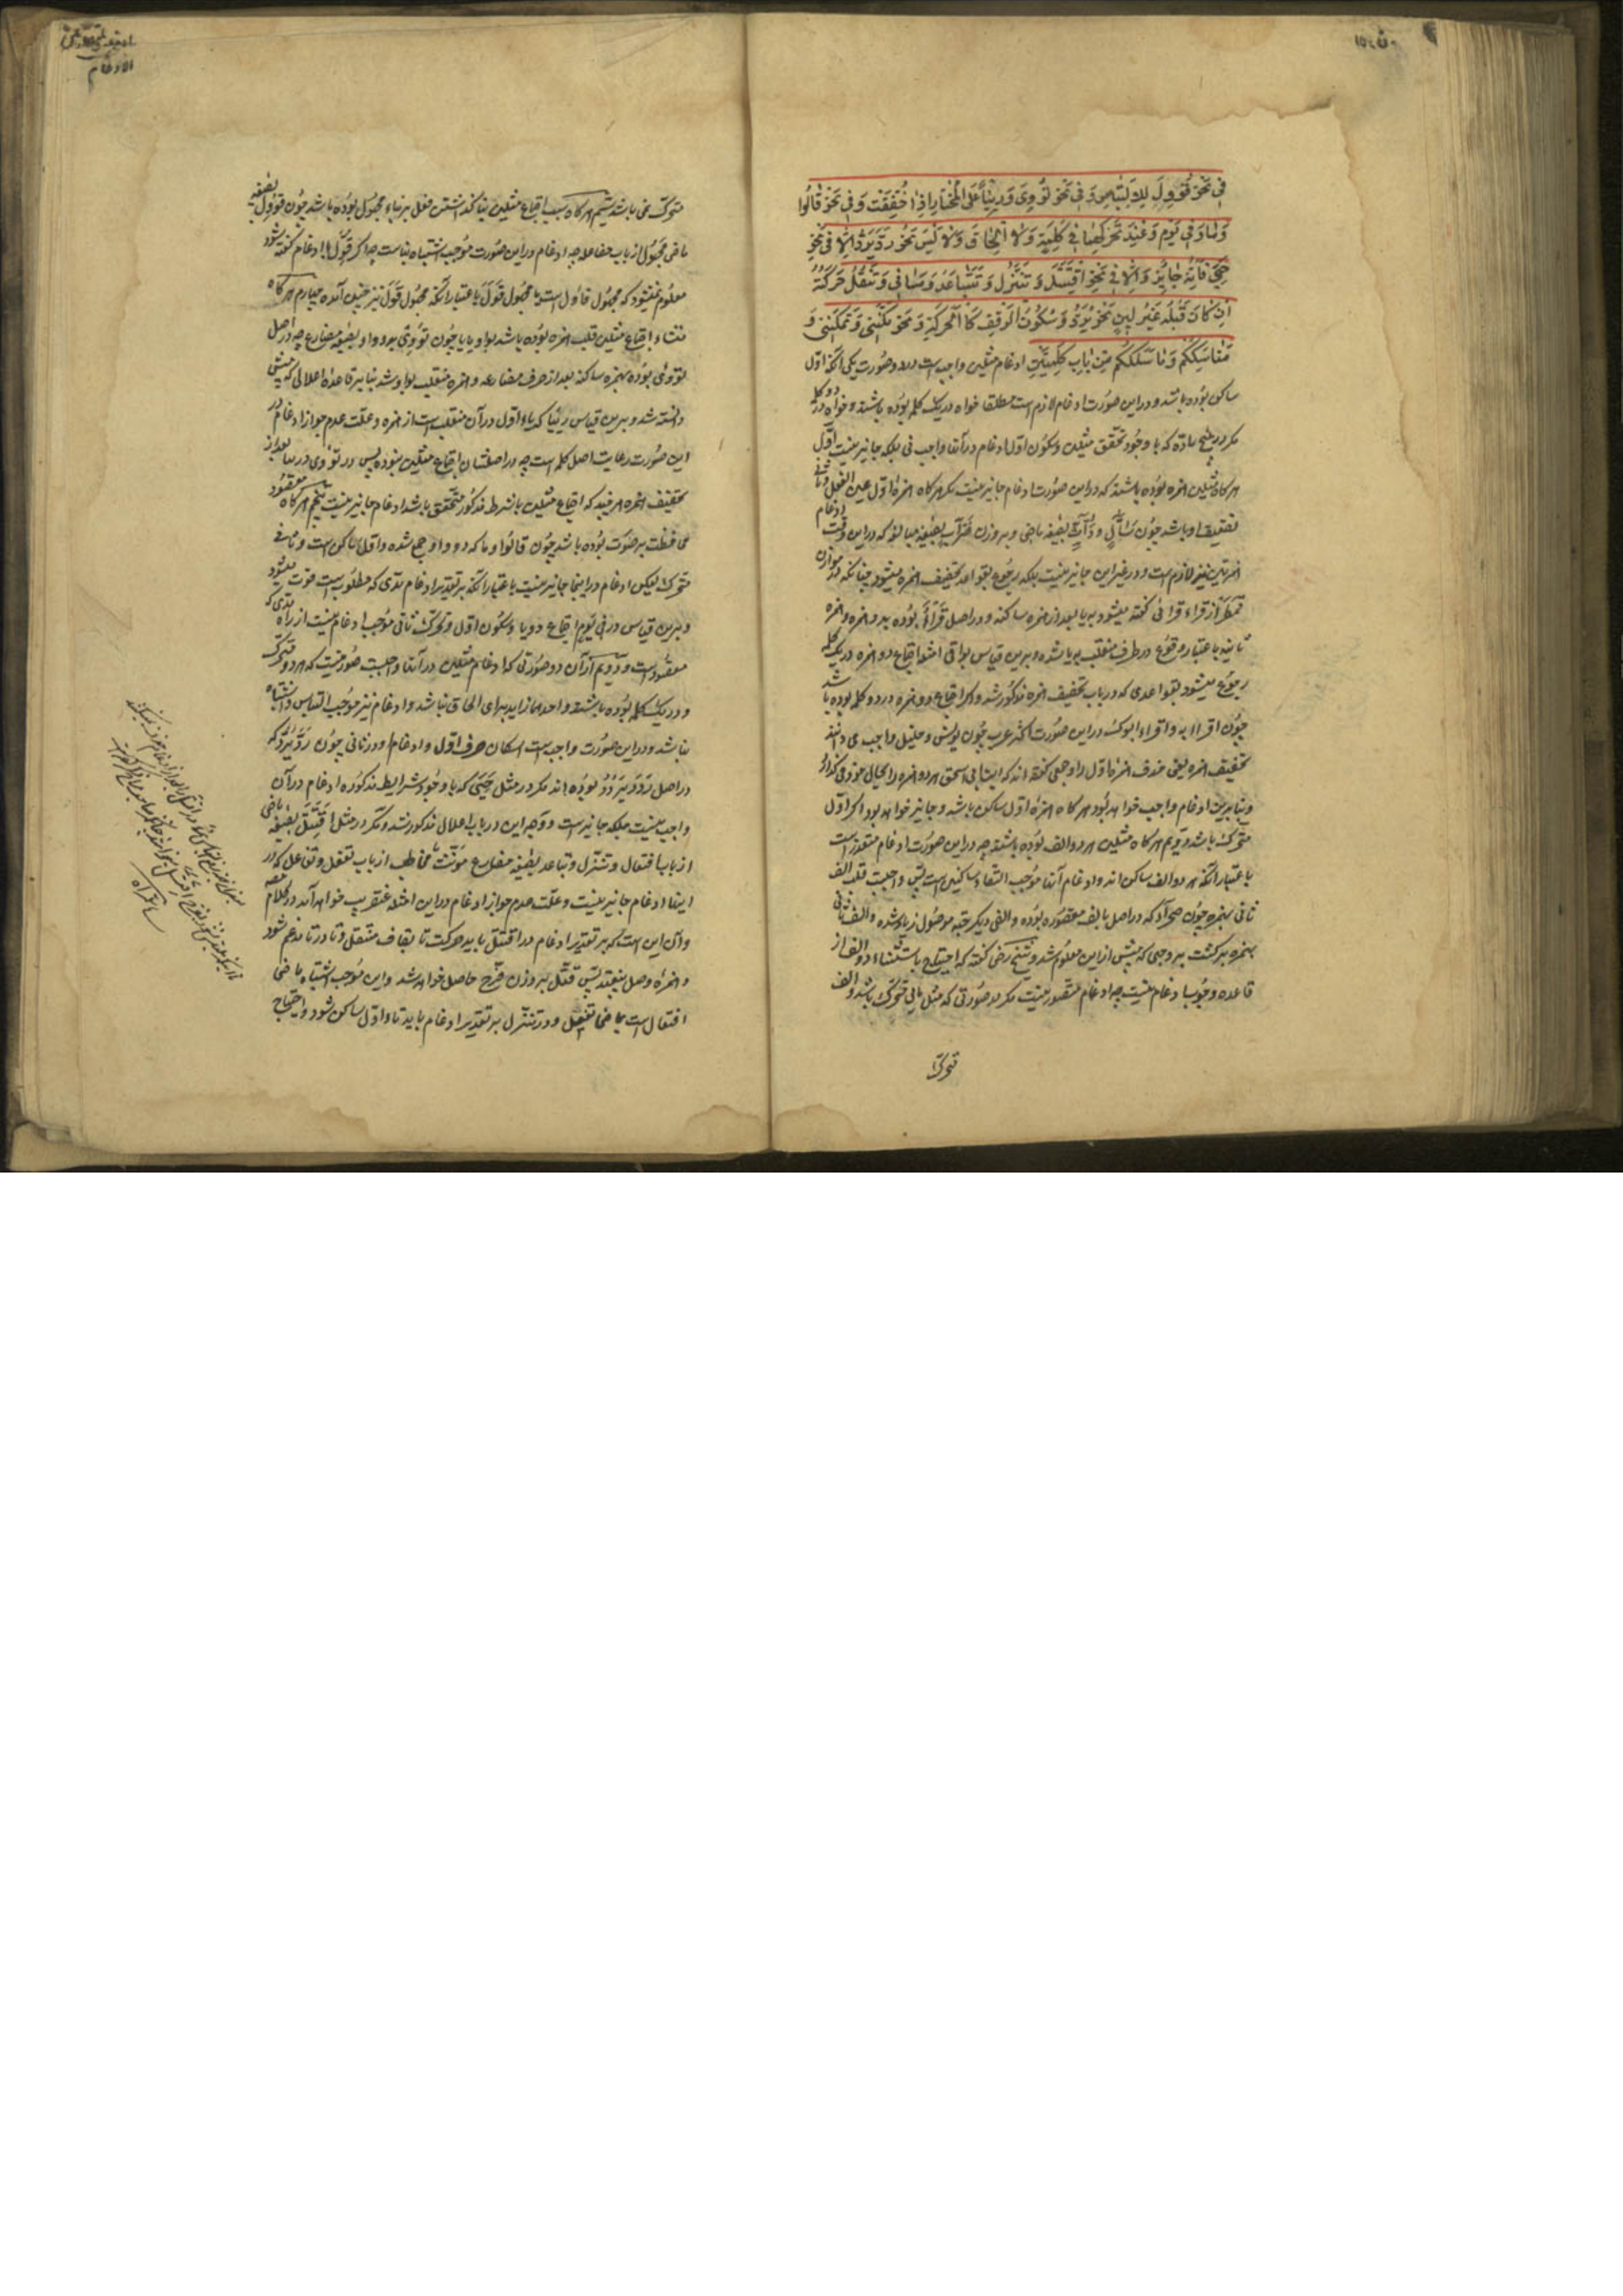 فی نحو قوول للالتباس و فی نحو تووی و رییا علی المختار اذا خففت و فی نحو قالوا
و ما و فی یوم و عند تحرکهما فی کلمة و لا الحاق و لا لبس نحو رد یرد الا فی نحو
حیی فانه جایز و الا فی نحو اقتتل و تتنزل و تتباعد و سیاتی و تنقل حرکته
ان کان قبله غیر لین نحو یرد و سکون الوقف کالحرکة و نحو مکننی و تمکننی و
مناسککم و ما سلککم من باب کلمتین ادغام مثلین واجب است در دو صورت یکی آنکه اول
ساکن بوده باشد و در این صورت ادغام لازم است مطلقا خواه در یک کلمه بوده باشند و خواه در دو کلمه
مکر در پنج ماده که با وجود تحقق مثلین و سکون اول ادغام در آنها واجب نی بلکه جایز نیست اول
هر کاه مثلین همزه بوده باشند که در این صورت ادغام جایز نیست مکر هر کاه همزه اول عین الفعل و ثانی
همزتین نیز لازم است و در غیر این جایز نیست بلکه رجوع بقواعد تخفیف همزه میشود چنانکه در موازن
قمطر از قراء قرائی کفته میشود بیا بعد از همزه ساکنه و در اصل قرأأ بوده بدو همزه و همزه
ثانیه باعتبار وقوع در طرف منقلب بیا شده و برین قیاس بواقی امثله اجتماع دو همزه در یک کلمه
رجوع میشود بقواعدی که در باب تخفیف همزه مذکور شد و اکر اجتماع دو همزه در دو کلمه بوده باشد
چون اقرا ایه و اقراء ابوک در این صورت اکثر عرب چون یونس و خلیل واجب می دانند
تخفیف همزه یعنی حذف همزه اول را و جمعی کفته اند که ابن ابی اسحق هر دو همزه را بحال خود می کذارد
و بنابرین ادغام واجب خواهد بود هر کاه همزه اول ساکن باشد و جایز خواهد بود اکر اول
متحرک باشد دویم هر کاه مثلین هر دو الف بوده باشند چه در این صورت ادغام متعذر است
باعتبار آنکه هر دو الف ساکن اند و ادغام آنها موجب التقاء ساکنین است پس واجبست قلب الف
ثانی بهمزه چون صحراء که در اصل بالف مقصوره بوده و الفی دیکر جهة مد صول زیاد شده و الف ثانی
بهمزه برکشت بر وجهی که پیش ازین معلوم شد و شیخ رضی کفته که احتیاج باستثناء دو الف از
قاعده وجوب ادغام نیست چه ادغام متصور نیست مکر در صورتی که مثل ثانی متحرک باشد و الف
متحرک
متحرک نمی باشد سیم هر کاه سبب اجتماع مثلین بنا کذاشتن فعل بر بناء مجهول بوده باشد چون قوول بصیغه
ماضی مجهول از باب مفاعله چه ادغام در این صورت موجب اشتباه بناست چه اکر قول بادغام کفته شود
معلوم نمیشود که مجهول قاول است یا مجهول قول باعتبار آنکه مجهول قول نیز چنین آمده چهارم هر کاه
منشاء اجتماع مثلین قلب همزه بوده باشد بواو یا یا چون تووی بدو واو بصیغه مضارع چه در اصل
تؤوی بوده بهمزه ساکنه بعد از حرف مضارعه و همزه منقلب بواو شد بنابر قاعده اعلالی که پیش
دانسته شد و برین قیاس رییا که یاء اول در آن منقلب است از همزه و علت عدم جواز ادغام در
این صورت رعایت اصل کلمه است چه در اصلشان اجتماع مثلین نبوده پس در تووی و رییا بعد از
تخفیف همزه هر چند که اجتماع مثلین با شرط مذکور متحقق باشد ادغام جایز نیست پنجم هر کاه مقصود
محافظت بر صوت بوده باشد چون قالوا و ما که دو واو جمع شده و اول ساکن است و ثانی
متحرک لیکن ادغام در اینجا جایز نیست باعتبار آنکه بر تقدیر ادغام مدی که مطلوبست فوت میشود
و برین قیاس در فی یوم اجتماع دو یا و سکون اول و تحرک ثانی موجب ادغام نیست از راه مدی که
مقصود است و دویم از آن دو صورتی که ادغام مثلین در آنها واجبست صورتیست که هر دو متحرک
و در یک کلمه بوده باشند و احدهما زاید برای الحاق نباشد و ادغام نیز موجب التباس و اشتباه
نباشد و در این صورت واجب است اسکان حرف اول و ادغام او در ثانی چون رد یرد که
در اصل ردد یردد بوده اند مکر در مثل حیی که با وجود شرایط مذکوره ادغام در آن
واجب نیست بلکه جایز است و وجه این در باب اعلال مذکور شد و مکر در مثل اقتتل بصیغه ماضی
از باب افتعال و تتنزل و تتباعد بصیغه مضارع مؤنث یا مخاطب از باب تفعل و تفاعل که در
اینها ادغام جایز نیست و علت عدم جواز ادغام در این امثله عنقریب خواهد آمد در کلام مصه
و آن این است که بر تقدیر ادغام در اقتتل باید حرکت تا بقاف منتقل و تا در تا مدغم شود
و همزه وصل بیفتد پس قتل بر وزن فرح حاصل خواهد شد و این موجب اشتباه ماضی
افتعال است بماضی تفعیل و در تتنزل بر تقدیر ادغام باید تاء اول ساکن شود و احتیاج